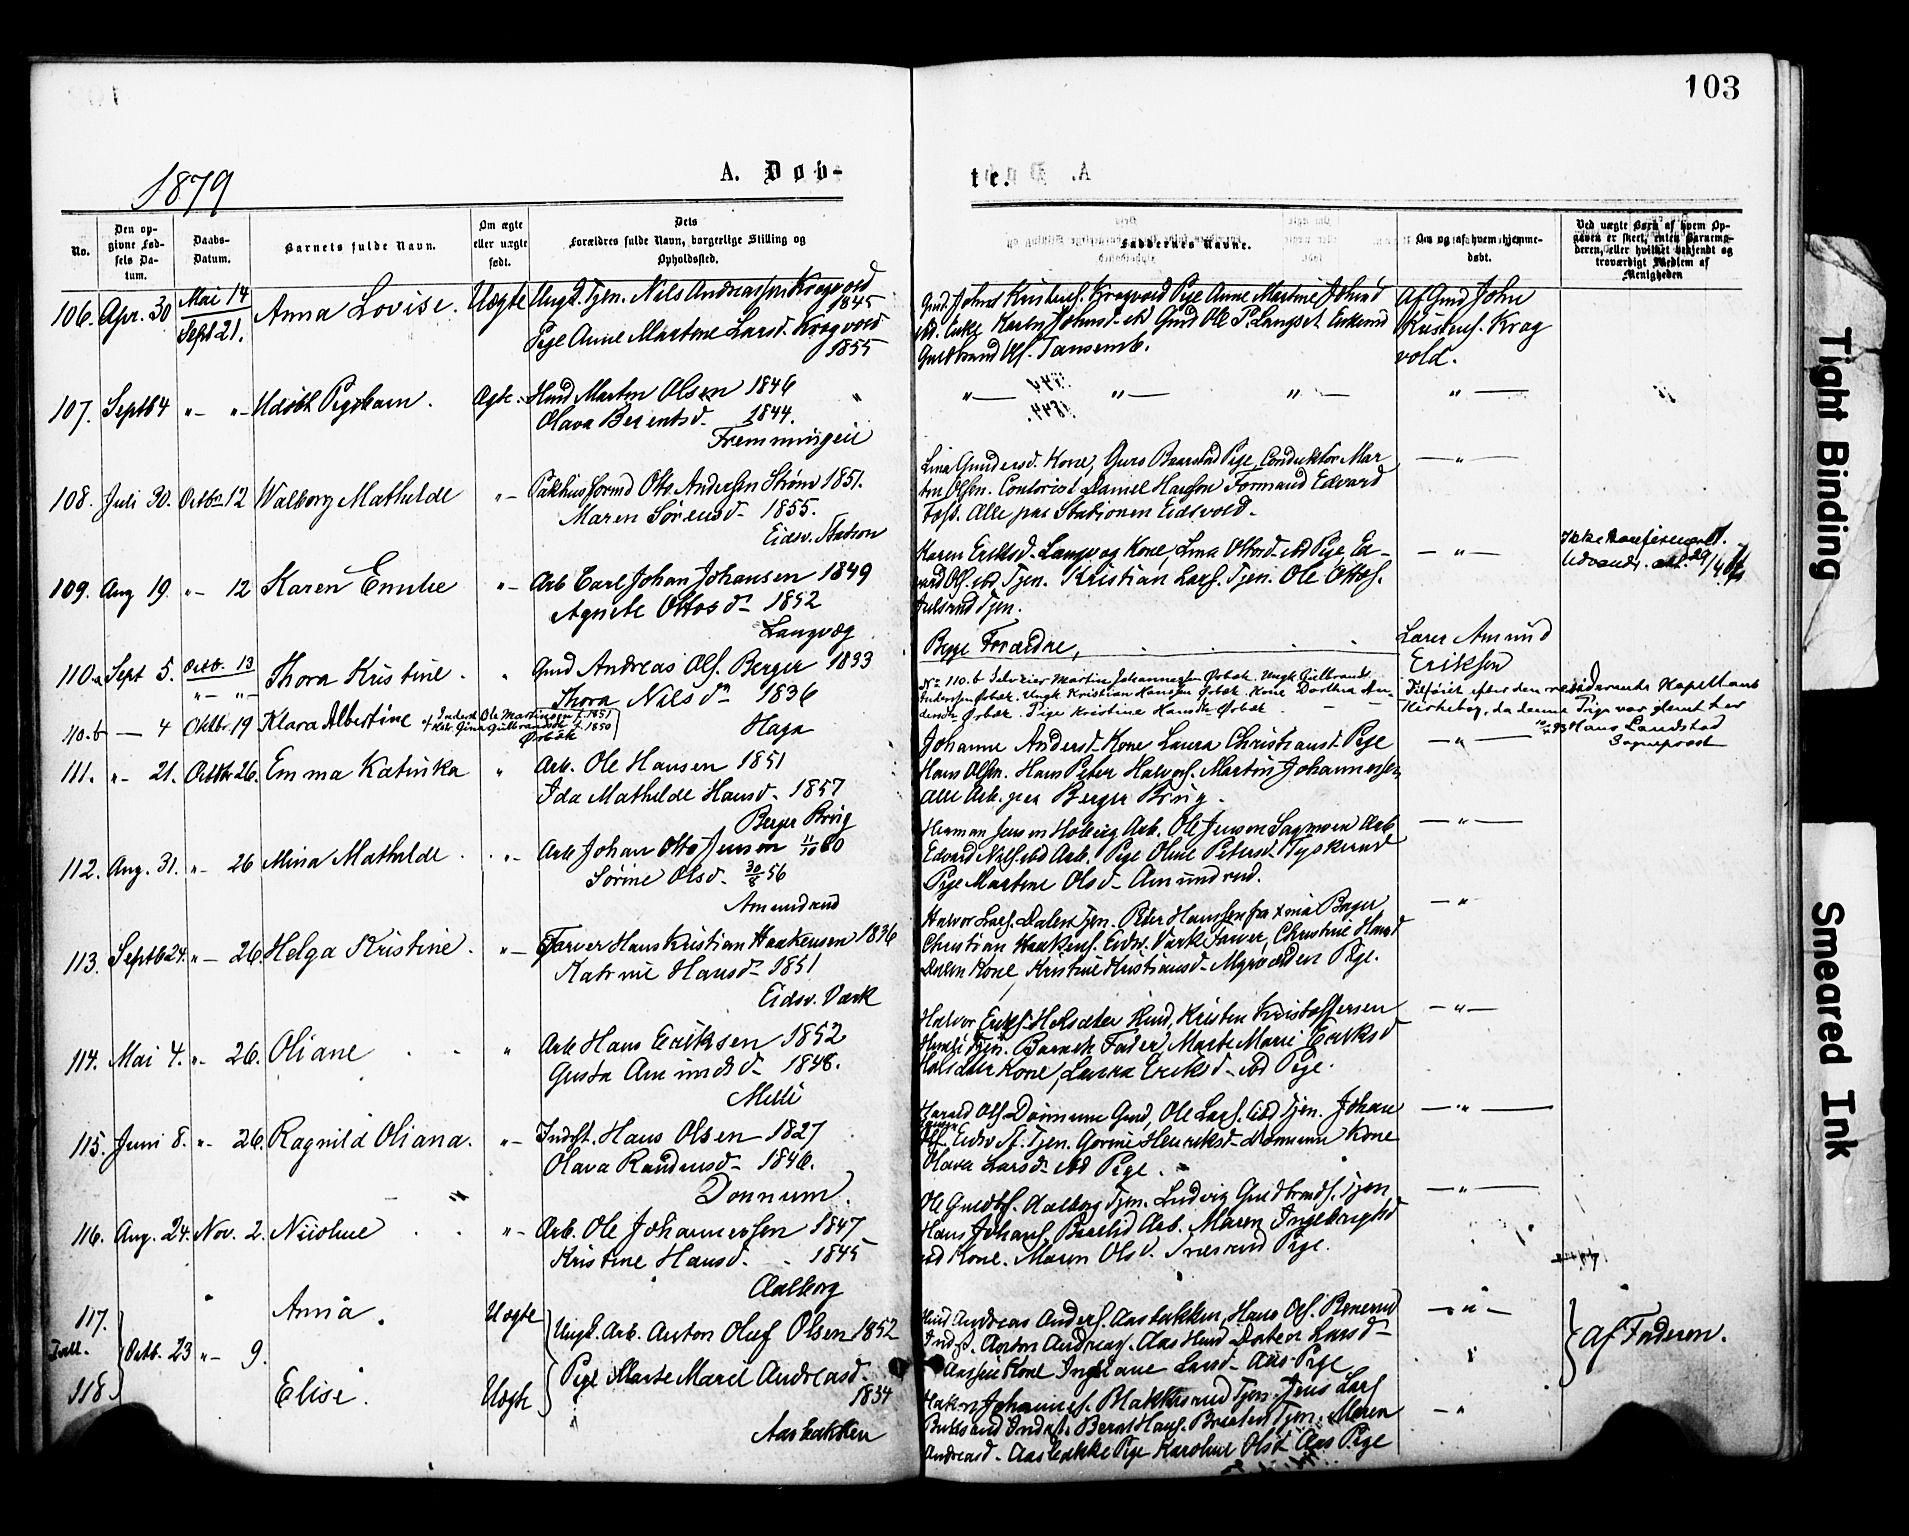 103
1879
A. Døb-
te.
No.
Den op-
givne Fød-
sels Da-
tum.
Daabs-
Datum.
Barnets fulde Navn.
Om ægte
eller uægte
født.
Dets
Forældres fulde Navn, borgerlige Stilling og
Opholdssted.
Faddernes Navne.
Om og af hvem hjemme-
døbt.
Ved uægte Børn af hvem Op-
gaven er skeet, enten Barnemo-
deren, eller hvilket bekjendt og
troværdigt Medlem af
Menigheden
106. Apr. 30 Mai 14
Sept 21. Anna Lovise. Uægte Ungk. Tjen. Nils Andreassen Kragvold
1845
Pige Anne Martine Larsd. Kragvold
1855
Pige Anne Martine Johnsd
Gulbrand Ols.
Af Gmd John
Kristens. Krag
vold.
107. Septb 4 " — " — Udøbt Pigebarn. Ægte. Husmd Martin Olsen 1846
Olava Berentsd. 1844.
108. Juli 30. Octbr 12 Walborg Mathilde " — Pakhusformd Otto Andersen Strøm 1851.
Maren Sørensd. 1855.
Eidsv. Station
Lina Gundersd. Kone, Guro Baarstad Pige, Conduktør Mar
tin Olsen. Contorist Daniel Hansen Formand Edvard
Foss. Alle paa Stationen Eidsvold.
109. Aug 19. " — 12 Karen Emilie " — Arb Carl Johan Johansen 1849
Agnete Ottosd. 1852
Langvæg
Karen Eriksd. Langvæg Kone, Lina Ottosd. ibd Pige, Ed-
vard Ols. ibd Tjen. Kristian Lars. Tjen. Ole Ottos.
Tjen.
Ikke konfirmeret.
110.a Sept 5. Octb. 13
" — " — Thora Kristine. " Gmd Andreas Ols. Berger 1833
Thora Nilsd. 1836
Haga
Begge Forældre,
Lærer Amund
Eriksen
110.b — 4 Oktb. 19 Klara Albertine
Inderst Ole Martinsen f. 1851
Gina Gulbrandsdt. f. 1850
Ørbæk
No 110.b Selveier Martin Johannesen Ørbæk. Ungk Gulbrand
Andersen Ørbæk. Ungk Kristian Hansen Ørbæk. Kone Dorthea An-
dersdt. Ørbæk. Pige Kristine Hansdt. Ørbæk.
Tilføiet efter den residerende Kapellans
Kirkebog, da denne Pige var glemt her
Hans Landstad
Sogneprest
111. " — 21. Octbr 26. Emma Katinka " Arb. Ole Hansen 1851
Ida Mathilde Hansd. 1857
Berger Brug
Johanne Andersd. Kone Laura Christiansd. Pige
Hans Olsen. Hans Peter Halvors. Martin Johannessen
alle Arb. paa Berger Brug.
112. Aug. 31. " — 26 Mina Mathilde. " — Arb Johan Otto Jensen
Sørine Olsd. 30/8 56
Amundrud
Herman Jensen Arb. Ole Jensen Arb
Edvard Nils. ibd Arb. Pige Oline Petersd.
Pige Martine Olsd. Amundrud.
113. Septb 24. " — 26. Helga Kristine. " — Farver Hans Kristian Haakensen 1836
Katrine Hansd. 1851
Eidsv. Værk
Halvor Lars. Dalen Tjen. Peter Hanssen fra Xnia Bager
Christian Haakens. Eidsv. Værk Farver, Christine Hansd
Dalen Kone, Kristine Kristiansd. Pige.
114. Mai 4. " — 26. Oliane " Arb Hans Eriksen 1852
Gusta Amundsd. 1848.
Melli
Halvor Eriks. Husmd, Kristen Kristoffersen
Tjen. Barnets Fader, Marte Marie Eriksd
Kone, Laura Eriksd. ibd Pige.
115. Juni 8. " — 26. Ragnild Oliana. " — Inderst. Hans Olsen 1827
Olava 1846.
Donnum.
Harald Ols. Dønnum Gmd, Ole Lars. ibd Tjen. Johan
Ols. Eidsv. St. Tjen. Gorine Henriksd. Dønnum Kone
Olava Larsd. ibd Pige.
116. Aug. 24. Nov. 2. Nicoline " — Arb. Ole Johannessen 1847
Kristine Hansd. 1845
Aalborg
Ole Guldbr. Aalborg Tjen. Ludvig Guldbrands. Tjen
Hans Johans. Arb. Maren Ingebrigtsd
ibd Kone. Maren Olsd. Pige.
117.
Tvill.
118.
Octb. 23 " — 9.
Anna. Uægte
Elise. Uægte
Ungk. Arb. Anton Oluf Olsen 1852
Pige Marte Marie Andreasd.
1834
Aasbakken
Husmd Andreas Anders. Aasbakken, Hans Ols.
Indst. Anton Andreas. Aas
Kone Larsd. Aas Pige
Hakon Johannes. Tjen. Jens Lars
Indst. Bernt Hans. Tjen. Maren
Andreasd. Aasbakke Pige Karoline Olsd. Aas Pige
Af Faderen.
Tight Binding
Smeared Ink